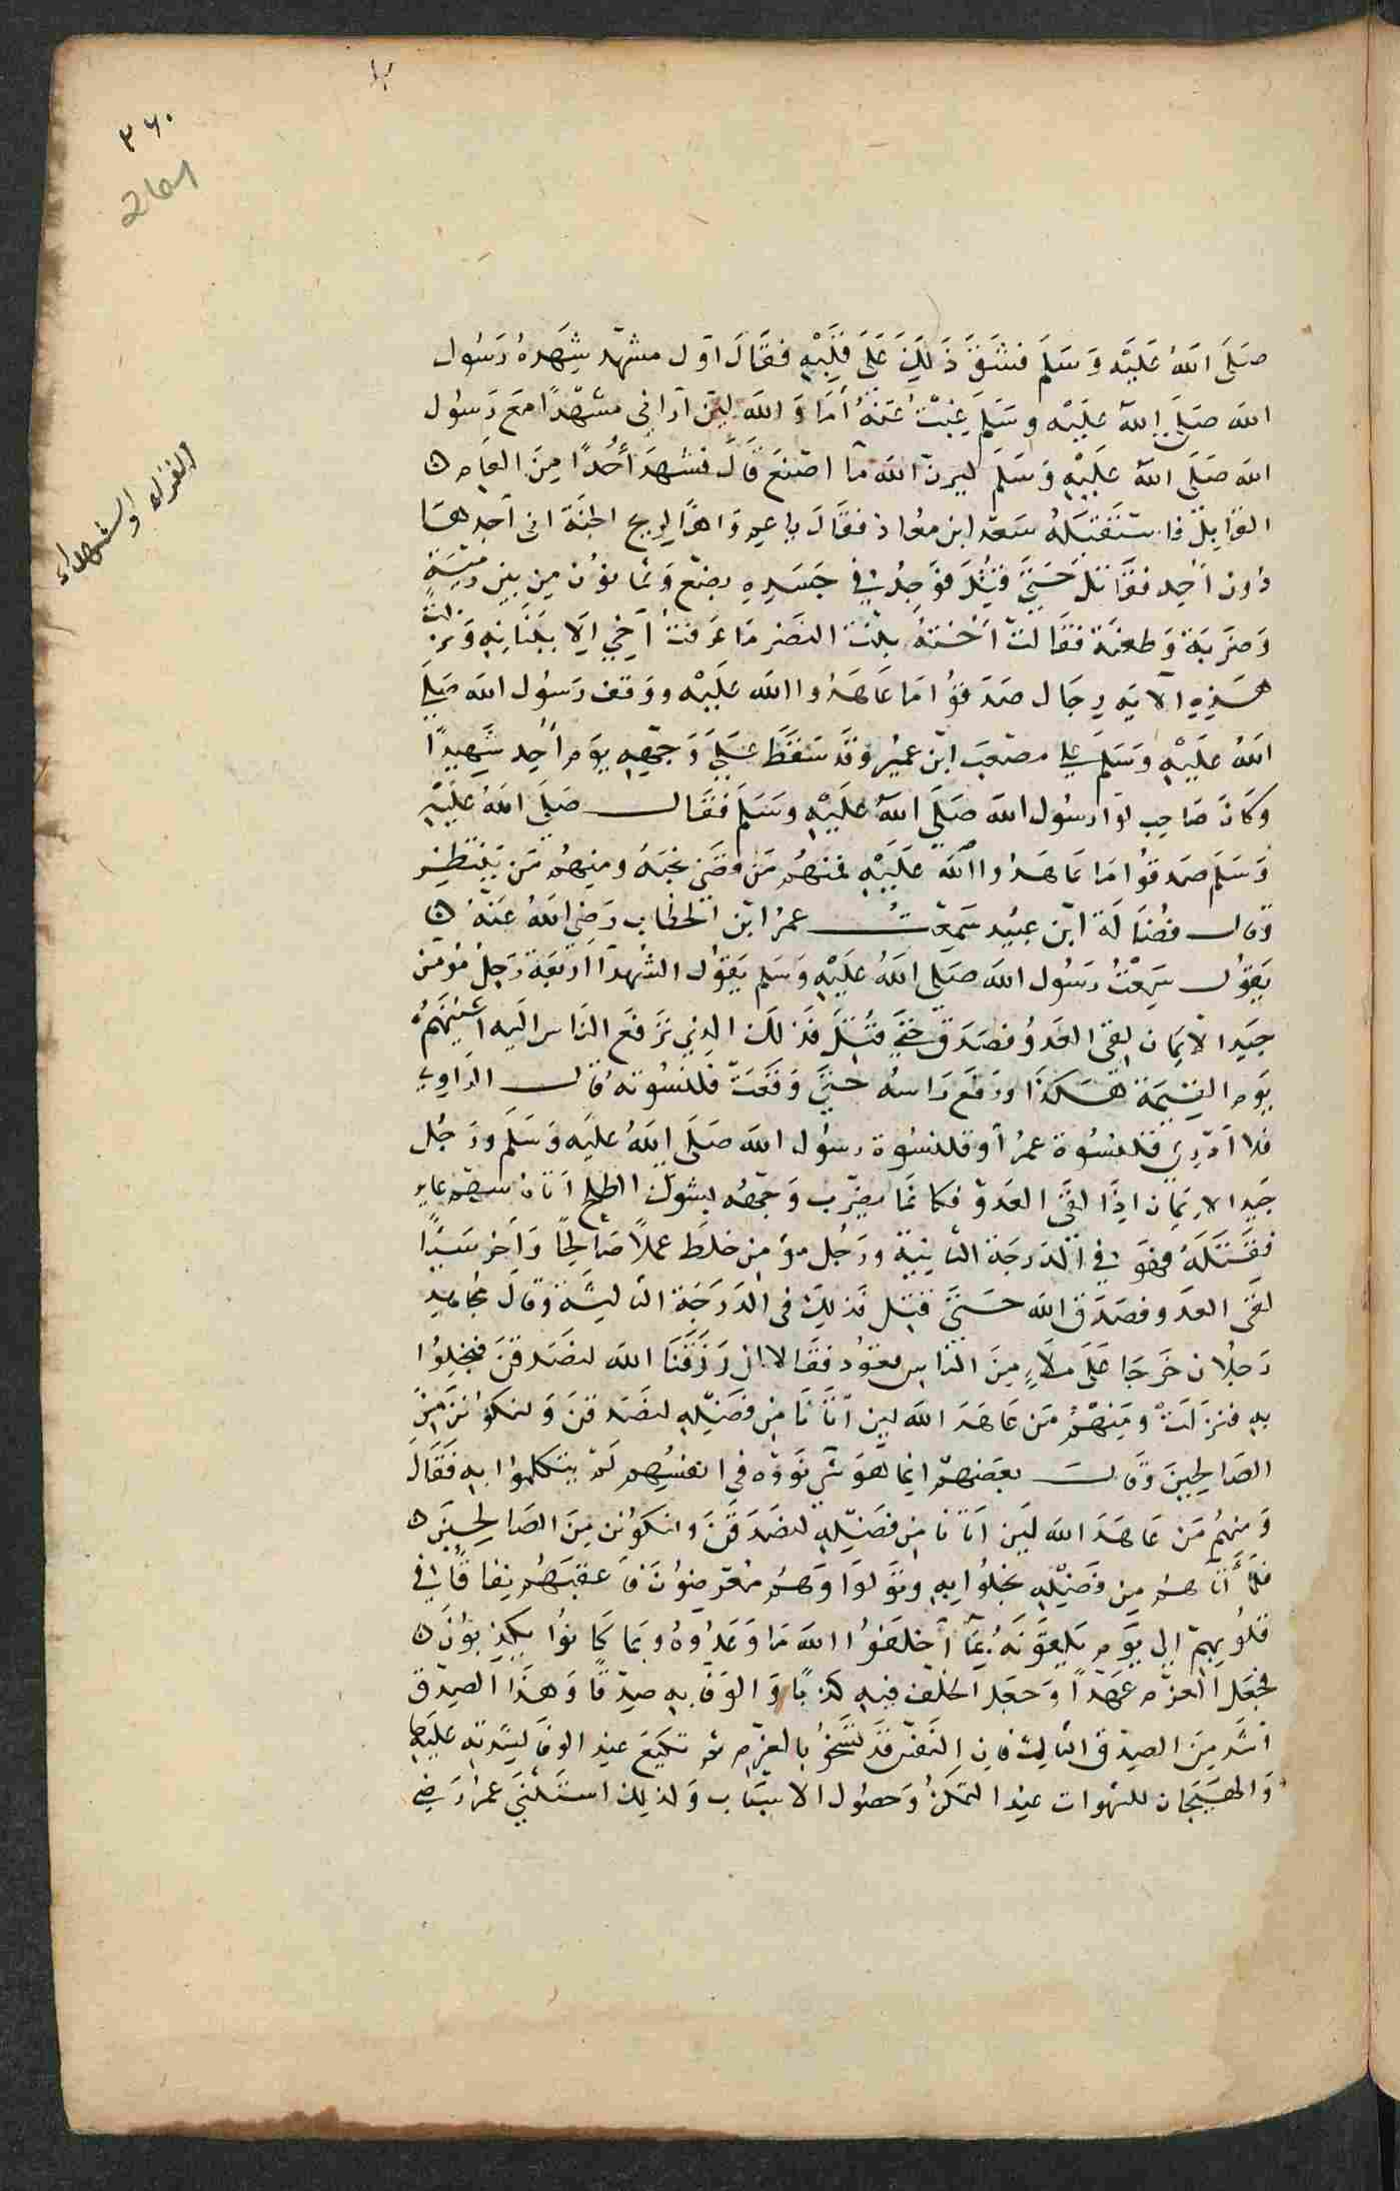 ٣٦٠
261
الغزاه والشهداء
صَلَى اللهُ عَلَيْه وَسَلَمَ فشَقَّ ذَلِكَ عَلَى قَلْبِهِ فقَالَ اوّل مشهّد شَهَدهُ رَسُول
الله صَلَى اللهُ عَلَيْه وسَلَمَ غِبْتُ عَنهُ أمَا وَاللهِ لئِن ارَاني مَشْهَدًا مَعَ رَسُول
الله صَلَى اللهُ عَلَيْهِ وَسَلَمَ ليرينّ الله مَا اصْنَع قَالَ فشَهدَ أُحُدًا مِنَ العَامِ
القَابِل فاسْتَقْبَلهُ سَعْد ابن معَاذ فقَالَ يا عمرو وَاهًا لريح الجنَة انى اجدهَا
دُون اُحد فقَاتَلَ حَتىَ قُتِلَ فوُجِد في جَسَدِهِ بضْع وَثمَانوُن مِن بين رميَةٍ
وَضرَبَة وَطعنَة فقَالَتْ اُخْتهُ بنْت النَضر مَا عَرفتُ اَخِي اِلَا ببَنَانِهِ وَنزلت
هَذِهِ الآيَه رِجَال صَدَقوُا مَا عَاهَدُوا الله عَلَيْه ووَقف رَسُول الله صَلى
اللهُ عَلَيْهِ وَسَلَمَ على مصْعَب ابْن عميْر وقد سَقَطَ عَلىَ وَجْهِهِ يوَم اُحد شَهِيدًا
وكَانَ صَاحِب لوَا رسُول الله صَلَى اللهُ عَلَيْهِ وسَلَمَ فقَال صَلَى اللهُ عَلَيْهِ
وَسَلَم صَدقوُا مَا عَاهَدُوا اللهَ عَلَيْهِ فمنهُم مَن قضَى نحْبَهُ ومنِهُم مَن ينْتَظِر
وقال فُضَالَة ابْن عبيْد سَمِعْتُ عمر ابْن الخطاب رَضِي اللهُ عَنْهُ
يَقوُل سَمِعْتُ رَسُول الله صَلَى اللهُ عَلَيْهِ وَسَلم يَقوُل الشُهدَا اربَعَة رَجُل مُؤمن
جَيد الايمَان لِقىَ العَدوُ فصَدَقَ حَتىَ قُتِلَ فذَلكَ الذِي يَرْفَع النَاس اليه اَعْيُنَهُم
يَوم القيَمَة هَكَذَا ورَفَع رَاسهُ حَتىَ وَقَعَتْ قلنسُوتهُ قال الرَاوِي
فلا اَدْرِي قلنسُوة عمرُ أو قلنسُوة رسُول الله صَلَى اللهُ عَليْه وَسَلَم ورَجُل
جَيد الايمَان اِذَا لقىَ العَدوّ فكانمَا يضرَب وَجْهُه بشوك الطلح اتاهُ سَهْم عاير
فقَتَلَهُ فهوَ في الدَرجَة الثانِيَة ورَجُل موُمِن خلَط عملاً صَالحًا وَاَخر سَيئًا
لقىَ العدَو فصَدَق الله حَتىَ قتل فذَلِكَ فى الدَرَجَة الثالثَة وقالَ مجَاهِد
رَجُلان خَرجَا عَلَى مَلاءٍ مِنَ النَاس قعوُد فقَالا ان رَزَقَنَا الله لنصَدقنَ فبخِلوُا
بِهِ فنزلَتْ ومِنهُمْ مَن عَاهَدَ الله لئن اتَانَا مِن فضَلِهِ لنصَدقنَ وَلنكوُننَ مِنَ
الصَالِحِينَ وقالَ بعَضهُم انما هوَ شَىَ نوَوْه في انفسُهم لَمْ يتَكلموُا بِهِ فقَالَ
وَمنِهُم مَن عَاهَدَ الله لَئن اتَانا مِن فضَلِهِ لنصَدقنَ ولنكوُننَ مِنَ الصَالِحِينَ
فلمَا اَتاهُم مِن فضَلِهِ بخِلوُا بِهِ وَتوَلوا وَهُم مُعْرضوُنَ فَاَعقبَهُم نِفَاقًا في
قلوُبِهِم الى يوَم يَلقوْنَهُ بمَا اَخلَفوُا الله مَا وَعَدُوهُ وبمَا كَانوُا يكَذِبوُنَ
فجَعَل العزم عهْدًا وَجعَل الخلف فيهِ كذبًا وَالوفَا بِهِ صِدْقًا وَهَذَا الصِدْق
اشَد مِنَ الصِدْق الثالث فان النَفْس قد تسْخوُ بالعزم ثم تكيع عِند الوفَا لشِدتِه عَلَيْهَا
وَالهيَجَان للشهوات عِند التمَكن وَحصُول الاسْبَاب وَلذلِك استَثْنَى عمر رَضي